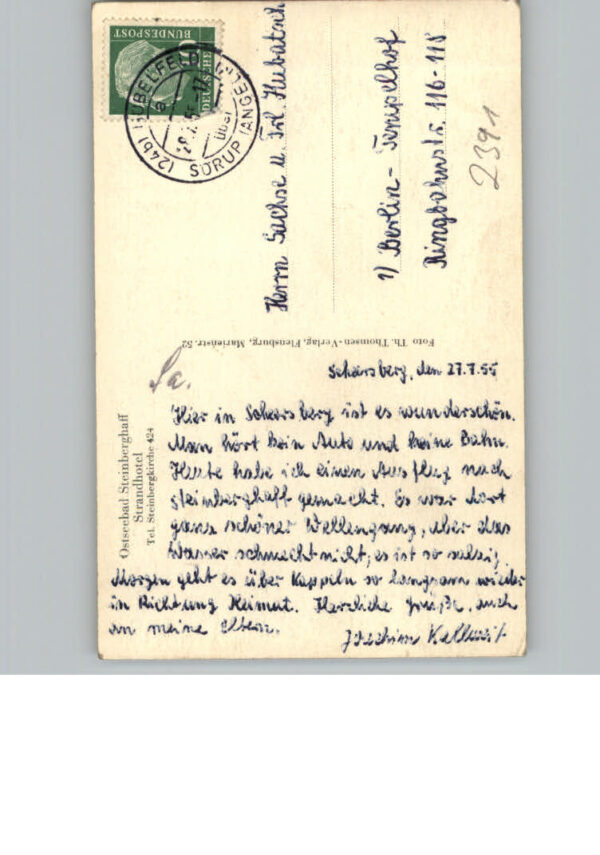 DEUTSCHE
BUNDESPOST
(24b) HÜBELFELD ÜBER SÖRUP (ANGELN)
Herrn Sachse u. Frl. Hubatsch
1) Berlin - Tempelhof
Ringbahnstr. 116-118
2391
Foto Th. Thomsen-Verlag, Flensburg, Marienstr. 52
Ostseebad Steinberghaff
Strandhotel
Tel. Steinbergkirche 424
Sa.
Schersberg, den 27.7.55
Hier in Schersberg ist es wunderschön.
Man hört kein Auto und keine Bahn.
Heute habe ich einen Ausflug nach
Steinberghaff gemacht. Es war dort
ganz schöner Wellengang, aber das
Wasser schmeckt nicht, es ist so salzig.
Morgen geht es über Kappeln so langsam wieder
in Richtung Heimat. Herzliche Grüße, auch
an meine Eltern.
Joachim